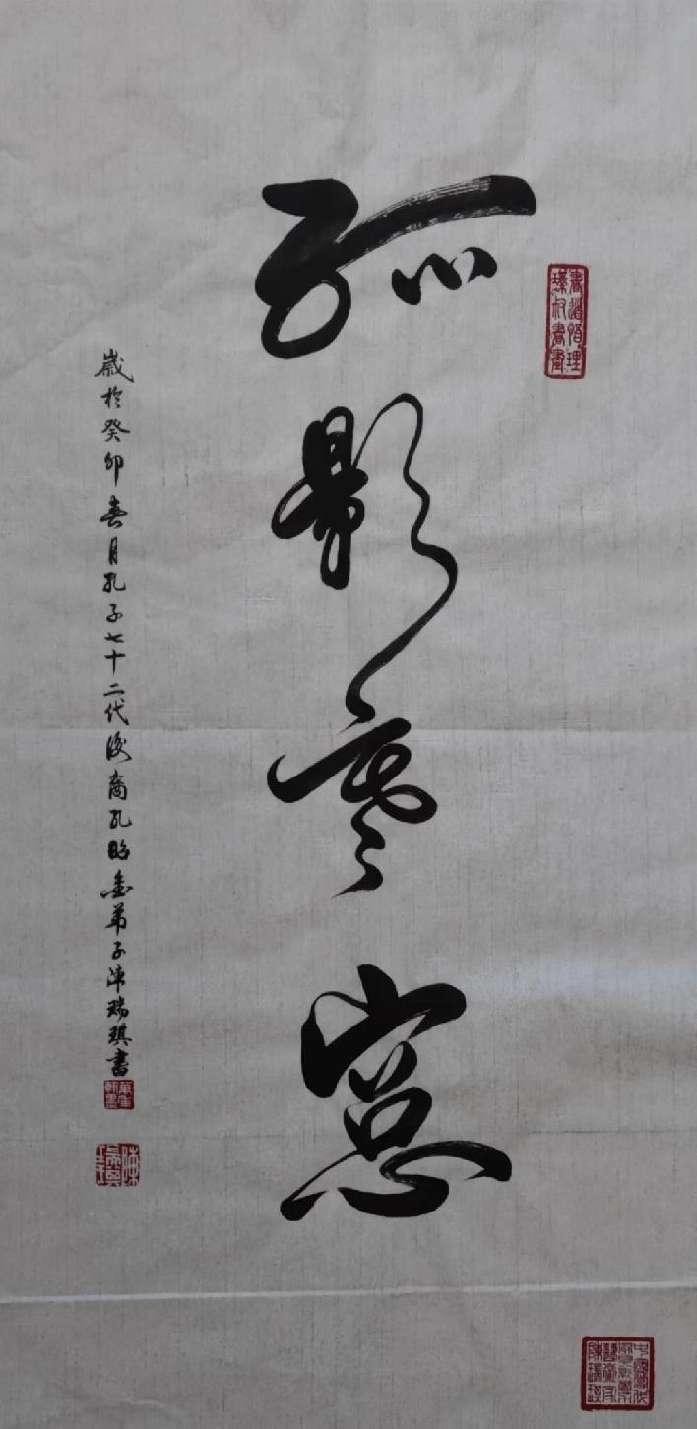 孤影寒窗
歲於癸卯春月孔子七十二代後裔孔昭金弟子陳瑞琪書